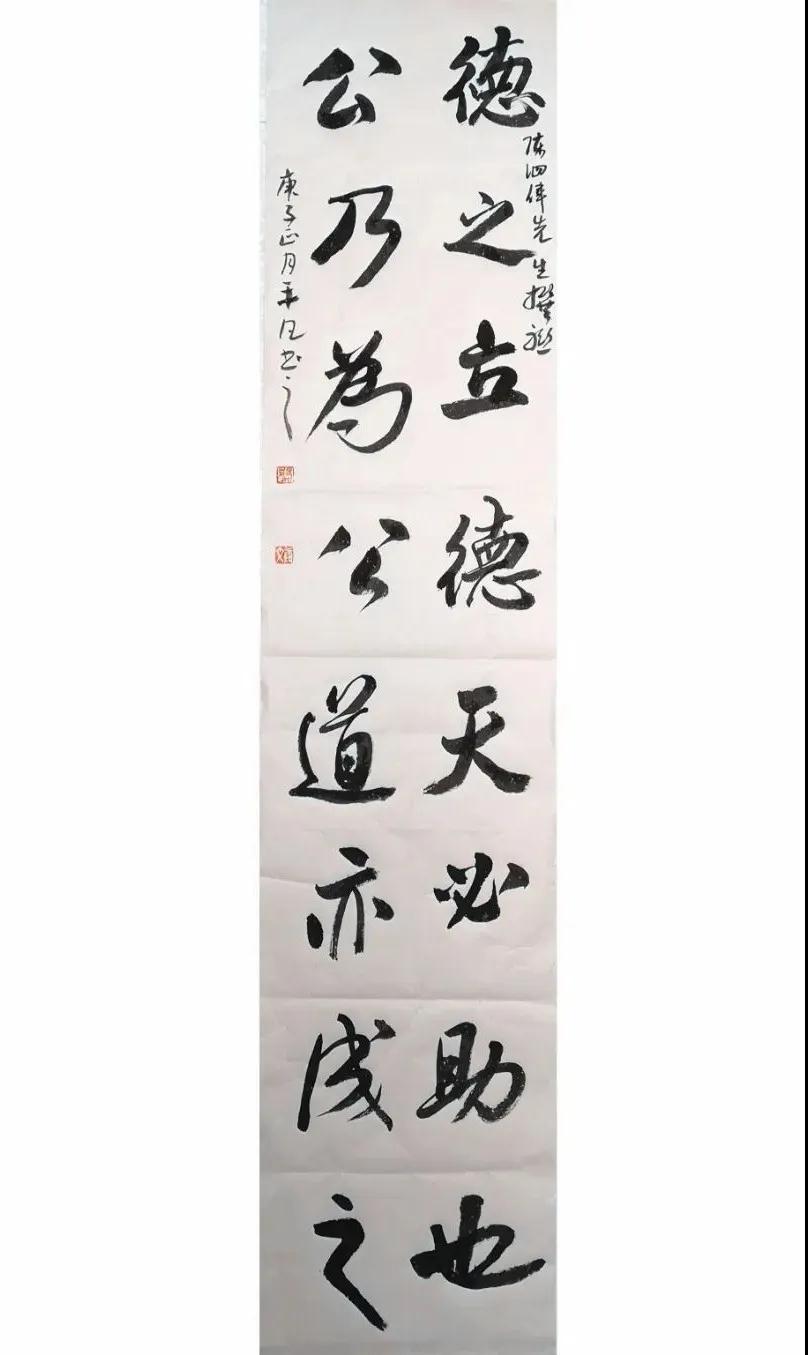 德之立德天必助也
陈泗伟先生撰联
公乃為公道亦成之
庚子正月平凡书之